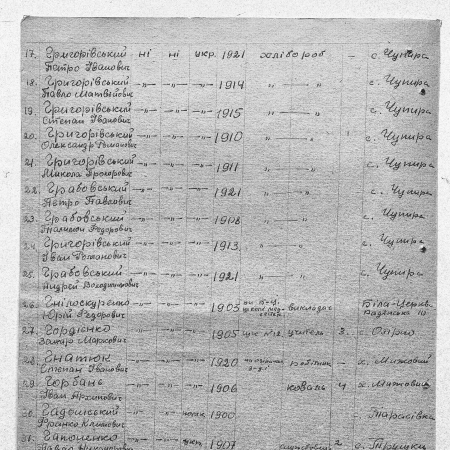 17. Григорівський ні ні укр. 1921 хлібороб с. Чупира
Петро Іванович
18. Григорівський —„— —„— —„— 1914 „ — „ с. Чупира
Павло Матвійович
19. Григорівський —„— —„— —„— 1915 „ — „ с. Чупира
Степан Іванович
20. Григорівський —„— —„— —„— 1910 „ — „ с. Чупира
Олександр Романович
21. Григорівський —„— —„— —„— 1911 „ — „ с. Чупира
Микола Прохорович
22. Грабовський —„— —„— —„— 1921 „ — „ с. Чупира
Петро Павлович
23. Грабовський —„— —„— —„— 1908 „ — „ с. Чупира
Федорович
24. Григорівський —„— —„— —„— 1913 „ — „ с. Чупира
Іван Романович
25. Грабовський —„— —„— —„— 1921 „ — „ с. Чупира
Андрей Володимирович
26. Гнілоскуренко —„— —„— —„— 1903 викладач Біла-Церква
Юрій Федорович
27. Гордієнко —„— —„— —„— 1905 учитель 3
Захар Маркович
28. Гнатюк —„— —„— —„— 1920 робітник
Степан Іванович
29. Горбань —„— —„— —„— 1906 коваль 4
Іван Архипович
30. —„— —„— 1900 Тарасівка
Франко Климович
31. Гапоненко —„— —„— укр. 1907 2 с. Трушки
Павло